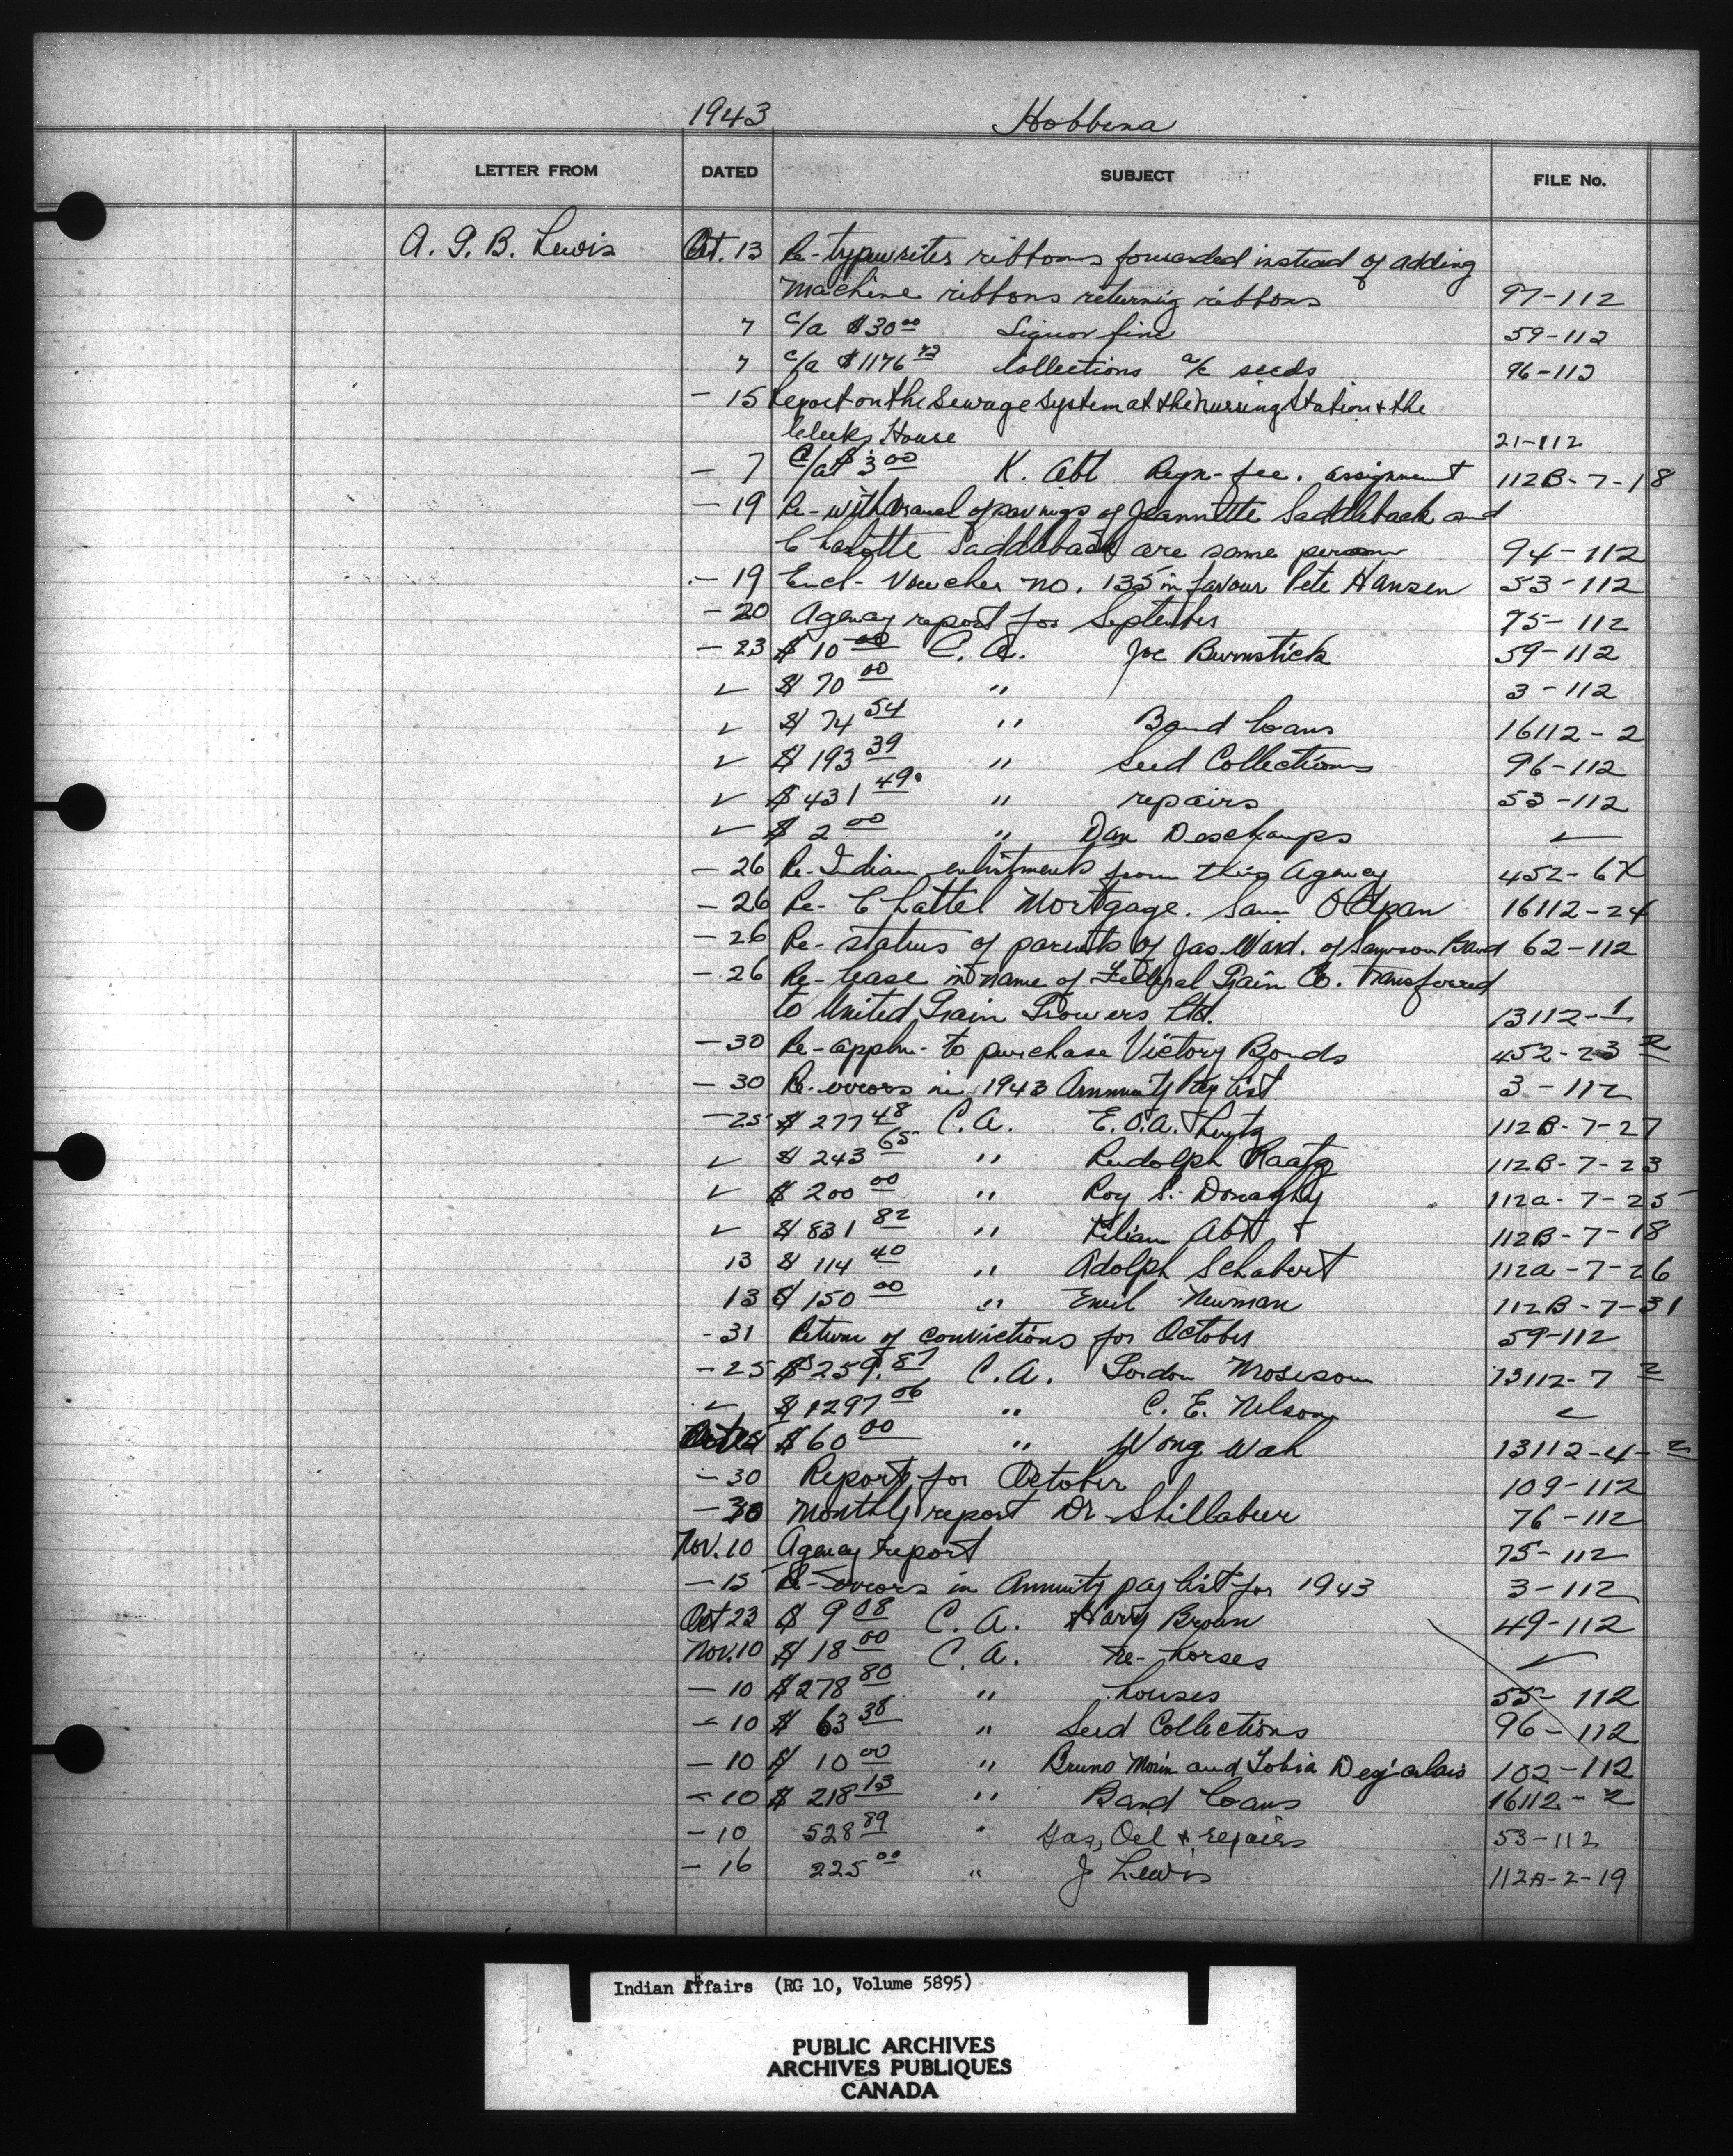 1943 Hobbema
LETTER FROM DATED SUBJECT FILE No.
A. G. B. Lewis Oct. 13 Re-typewriter ribbons forwarded instead of adding
Machine ribbons returning ribbons 97-112
7 c/a $30 00 Liquor fine 59-112
7 c/a $1176 72 Collections a/c seeds 96-112
- 15 Report on the Sewage System at the Nursing Station & the
Clerks House 21-112
- 7 C/a $ 3 00 K. Abt Regn-fee. assignment 112B-7-18
- 19 Re-withdrawal of savings of Jeannette Saddleback and
Charlotte Saddleback are same person 94-112
- 19 Encl- Voucher no. 135 in favour Pete Hansen 53-112
- 20 Agency report for September 75-112
- 23 $ 10 00 C. A. Joe Burnstick 59-112
✓ $ 70 00 " 3-112
✓ $ 74 54 " Band Loans 16112-2
✓ $ 193 39 " Seed Collections 96-112
✓ $ 431 49 " repairs 53-112
✓ $ 2 00 " Dan Deschamps ✓
- 26 Re-Indian enlistments from this Agency 452-6X
- 26 Re- Chattel Mortgage. Sam Oldpan 16112-24
- 26 Re- status of parents of Jas. Ward. of Samson Band 62-112
- 26 Re- lease in name of Federal Grain Co. Transferred
to United Grain Growers Ltd. 13112-1
- 30 Re-appln- to purchase Victory Bonds 452-23 2
- 30 Re-errors in 1943 Annuity Pay list 3-112
- 25 $ 277 48 C.A. E.O.A. 112B-7-27
✓ $ 243 65 " Rudolph Raatz 112B-7-23
✓ $ 200 00 " Roy S. Donaghy 112a-7-25
✓ $ 831 82 " Kilian Abt 112B-7-18
13 $ 114 40 " Adolph Schabert 112a-7-26
13 $ 150 00 " Emil Newman 112B-7-31
- 31 Return of convictions for October 59-112
- 25 $259. 87 C.A. Gordon 13112-7 2
✓ $ 1297 06 " C. E. Nelson ✓
$ 60 00 " Wong Wah 13112-4-2
- 30 Reports for October 109-112
- 30 Monthly report Dr Shillabeer 76-112
Nov. 10 Agency report 75-112
- 15 Re-errors in Annuity pay list for 1943 3-112
Oct 23 $ 9 08 C. A. Harry Brown 49-112
Nov. 10 $ 18 00 C. A. re- horses ✓
- 10 $278 80 " houses 55-112
- 10 $ 63 38 " Seed Collections 96-112
- 10 $ 10 00 " Bruno Morin and Tobia Desjarlais 102-112
- 10 $ 218 13 " Band Loans 16112-2
- 10 528 89 " Gas, Oil & repairs 53-112
- 16 225 00 " J Lewis 112A-2-19
Indian Affairs (RG 10, Volume 5895)
PUBLIC ARCHIVES
ARCHIVES PUBLIQUES
CANADA